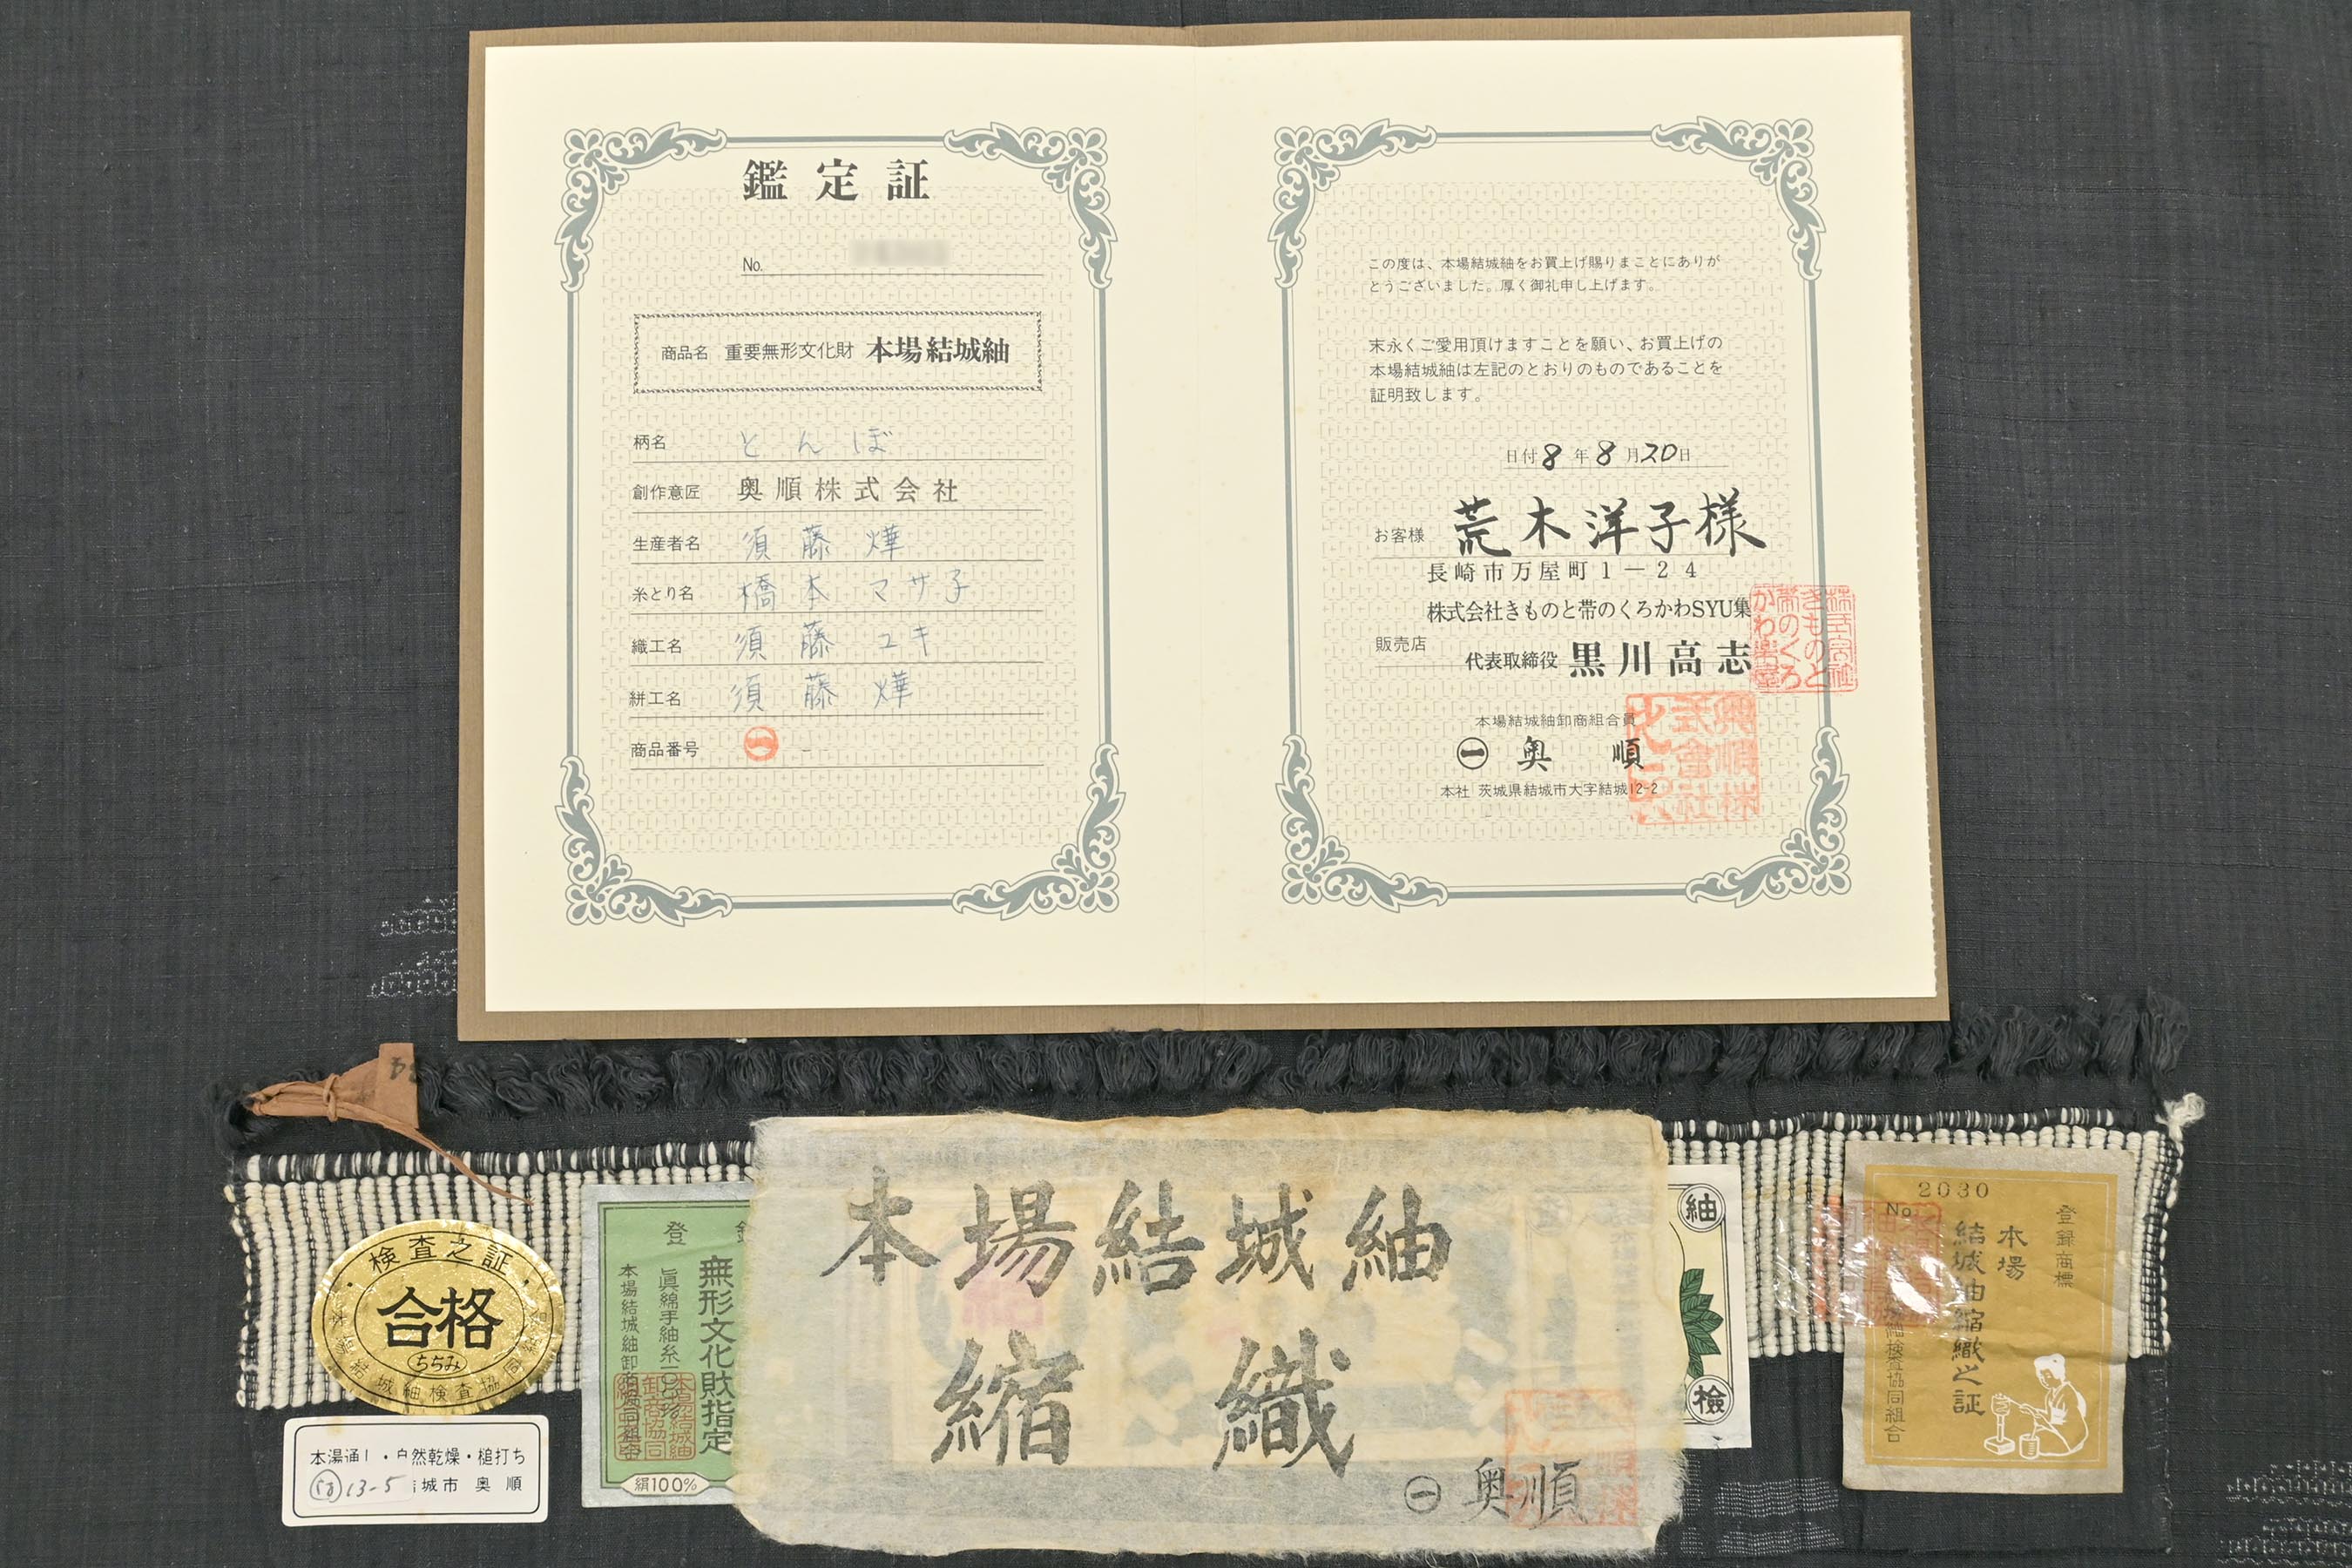 鑑定証
No.
商品名 重要無形文化財 本場結城紬
柄名 とんぼ
創作意匠 奥順株式会社
生産者名 須藤 燁
糸とり名 橋本 マサ子
織工名 須藤 ユキ
絣工名 須藤 燁
商品番号 ㊀
この度は、本場結城紬をお買上げ賜りまことにありが
とうございました。厚く御礼申し上げます。
末永くご愛用頂けますことを願い、お買上げの
本場結城紬は左記のとおりのものであることを
証明致します。
日付 8 年 8 月 20 日
お客様 荒木洋子様
長崎市万屋町1-24
株式会社きものと帯のくろかわSYU集
販売店 代表取締役 黒川高志
株式会社きものと帯のくろかわ
本場結城紬卸商組合員
㊀ 奥順
本社 茨城県結城市大字結城12-2
奥順株式会社
34
・検査之証・
合格
ちぢみ
本場結城紬検査協同
本湯通し・自然乾燥・槌打ち
13-5 城市 奥順
登
無形文化財指定
眞綿手紬糸一〇〇%
本場結城紬卸商協同組合
絹100%
本場結城紬
縮織
㊀ 奥順
紬
検
2030
No.
登録商標
本場
結城紬縮織之証
城紬検査協同組合